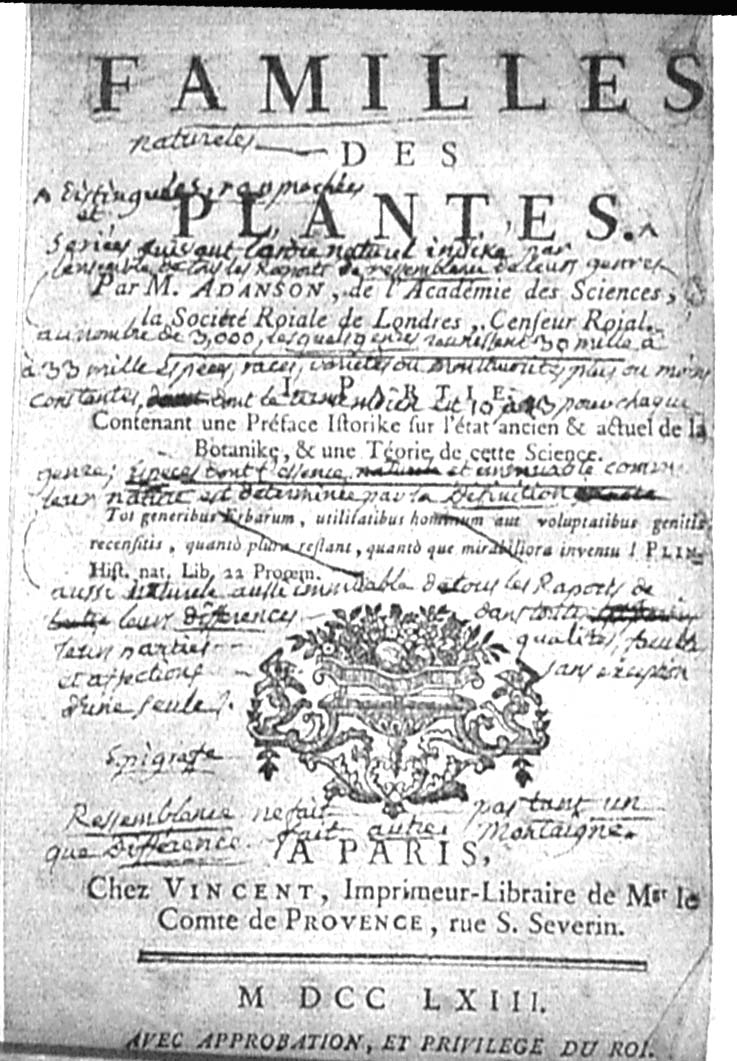 FAMILLES
natureles
DES
^ Distinguées, raprochées
et
PLANTES.^
Seriées suivant l'ordre naturel indiké par
l'ensemble de tous les Raports de ressemblance de leurs genres
Par M. ADANSON, de l'Académie des Sciences,
la Société Roïale de Londres, Censeur Roïal.
au nombre de 3,000, lesquels genres reunissent 30 mille à
à 33 mille Especes, races, varietés ou Monstruosités plus ou moins
I. PARTIE.
constantes, dont le terme moïen est 10 à 13 pour chaque
Contenant une Préface Istorike sur l'état ancien & actuel de la
Botanike, & une Téorie de cette Science.
genre; Especes dont l'essence et immuable comme
leur nature est determinée par la Définition
Tot generibus Erbarum, utilitatibus hominum aut voluptatibus genitis
recensitis, quantò plura restant, quantò que mirabiliora inventu! PLIN.
Hist. nat. Lib. 22 Proœm.
aussi naturele aussi immuable de tous les Raports de
leurs différences dans toutes
leurs parties qualités, facultés
et affections sans exception
d'une seule.
Epigrafe
Ressemblance ne fait pas tant un
que Différence fait autre. Montaigne.
A PARIS,
Chez VINCENT, Imprimeur-Libraire de Mgr le
Comte de PROVENCE, rue S. Severin.
M DCC LXIII.
AVEC APPROBATION, ET PRIVILEGE DU ROI.